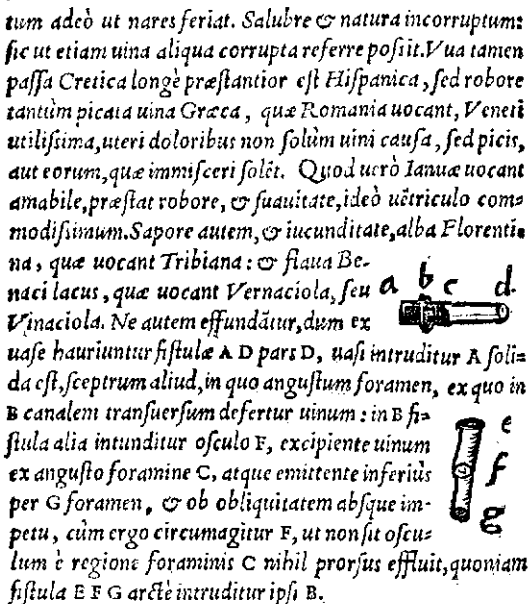 tum adeò ut nares feriat. Salubre & natura incorruptum:
sic ut etiam uina aliqua corrupta referre poſsit. Vua tamen
paſſa Cretica longè præſtantior eſt Hiſpanica, ſed robore
tantùm picata uina Græca, quæ Romania uocant, Veneri
utiliſsima, uteri doloribus non ſolùm uini cauſa, ſed picis,
aut eorum, quæ immiſceri ſolẽt. Quod uerò Ianuæ uocant
amabile, præſtat robore, & ſuauitate, ideò uẽtriculo com=
modiſsimum. Sapore autem, & iucunditate, alba Florenti=
na, quæ uocant Tribiana: & flaua Be-
naci lacus, quæ uocant Vernaciola, ſeu
Vinaciola. Ne autem effundãtur, dum ex
uaſe hauriuntur fiſtulæ A D pars D, uaſi intruditur A ſoli=
da eſt, ſceptrum aliud, in quo anguſtum foramen, ex quo in
B canalem tranſuerſum defertur uinum: in B fi=
ſtula alia intunditur oſculo F, excipiente uinum
ex anguſto foramine C, atque emittente inferiùs
per G foramen, & ob obliquitatem abſque im-
petu, cùm ergo circumagitur F, ut non ſit oſcu=
lum è regione foraminis C nihil prorſus effluit, quoniam
fiſtula E F G arctè intruditur ipſi B.
a b c d
e
f
g